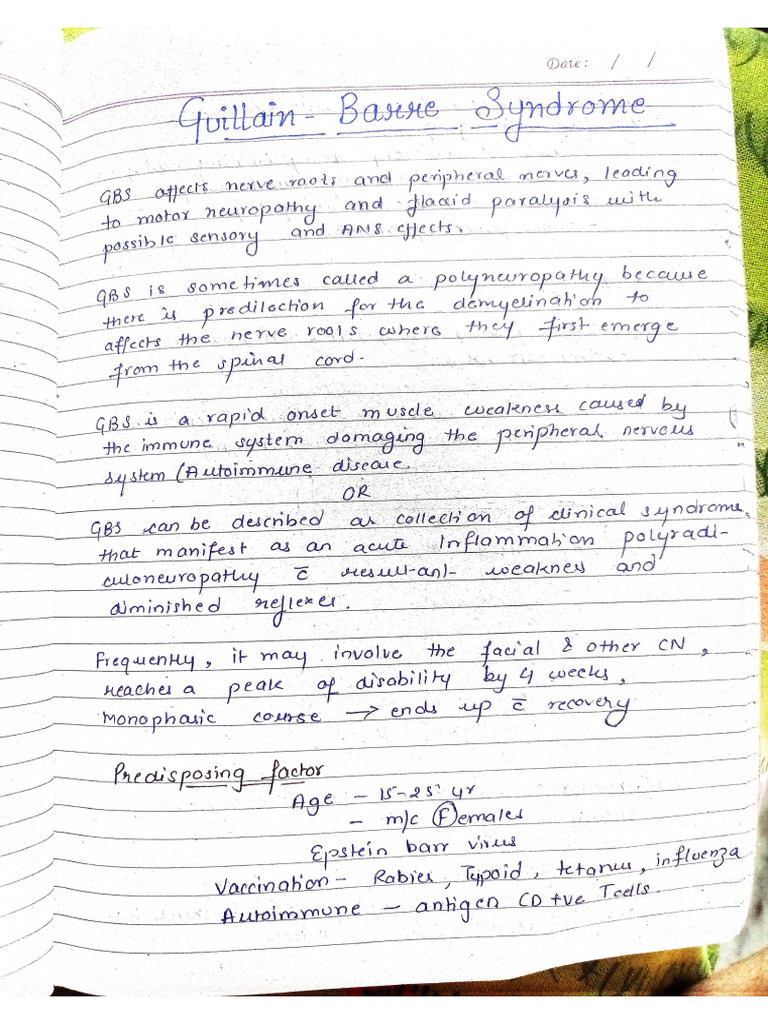 Date: / /
Guillain-Barre Syndrome
GBS affects nerve roots and peripheral nerves, leading
to motor neuropathy and flaccid paralysis with
possible sensory and ANS effects.
GBS is sometimes called a polyneuropathy because
there is predilection for the demyelination to
affects the nerve roots where they first emerge
from the spinal cord.
GBS is a rapid onset muscle weakness caused by
the immune system damaging the peripheral nervous
system (Autoimmune disease.
OR
GBS can be described as collection of clinical syndrome,
that manifest as an acute Inflammation polyradi-
culoneuropathy c̄ result-ant- weakness and
diminished reflexes.
Frequently, it may involve the facial & other CN,
reaches a peak of disability by 4 weeks,
Monophasic course → ends up c̄ recovery
Predisposing factor
Age - 15-25 yr
- m/c Females
Epstein barr virus
Vaccination - Rabies, Typoid, tetanus, influenza
Autoimmune - antigen CD +ve Tcells.